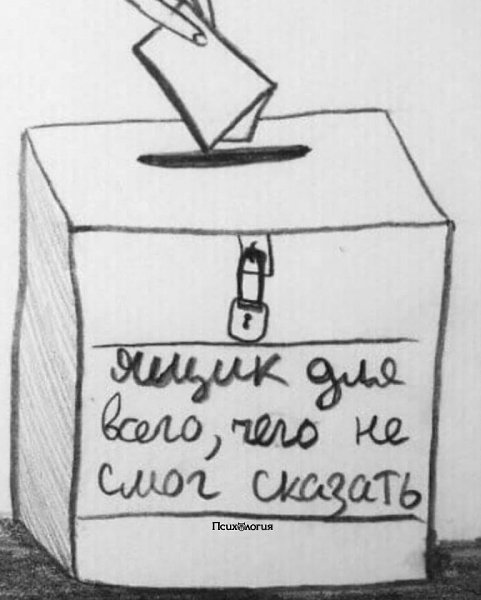 ящик для
всего, чего не
смог сказать
Психология